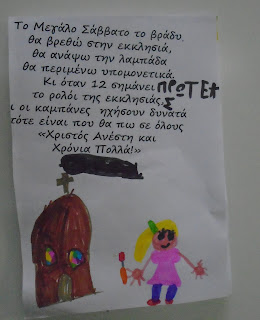 Το Μεγάλο Σάββατο το βράδυ
θα βρεθώ στην εκκλησιά,
θα ανάψω την λαμπάδα
θα περιμένω υπομονετικά.
Κι όταν 12 σημάνει
το ρολόι της εκκλησιάς,
ι οι καμπάνες ηχήσουν δυνατά
τότε είναι που θα πω σε όλους
«Χριστός Ανέστη και
Χρόνια Πολλά!»